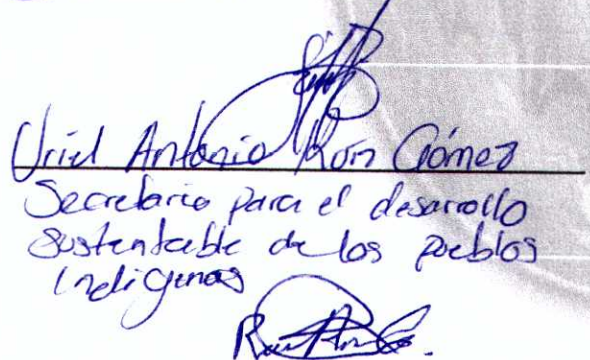 Uriel Antonio Gómez
Secretario para el desarrollo
sustentable de los pueblos
Indigenas